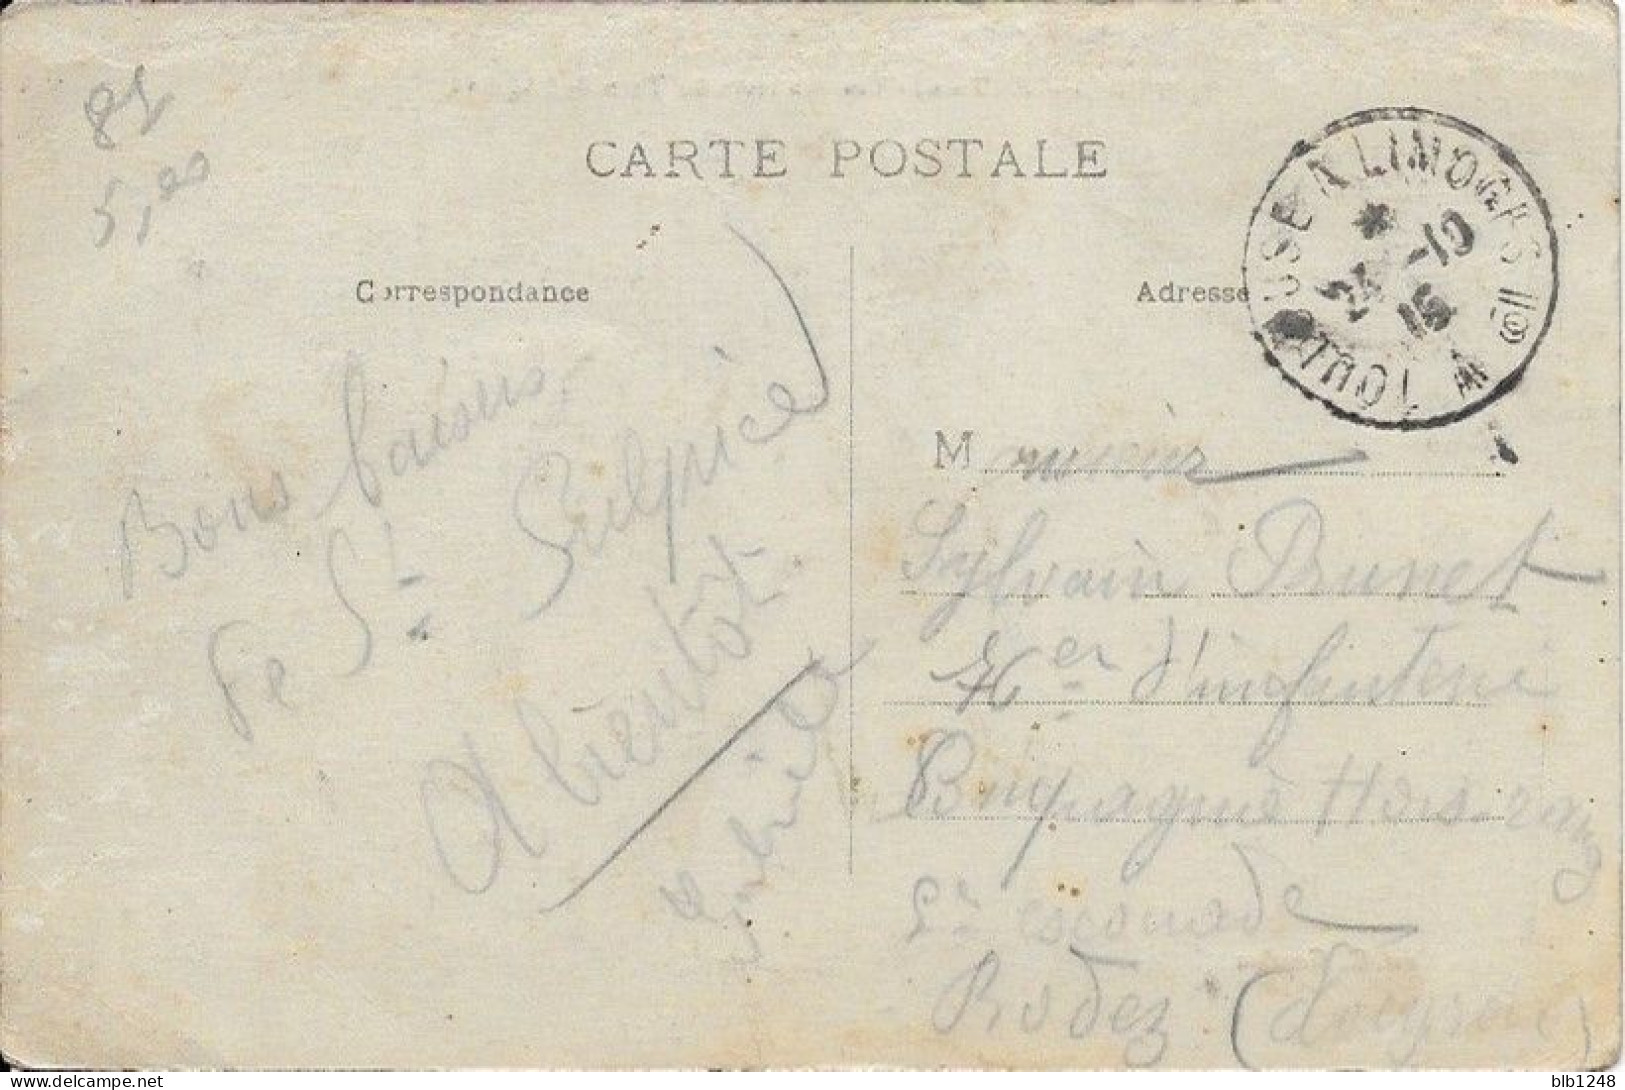 81
5,00
CARTE POSTALE
Correspondance
Adresse
TOULOUSE A LIMOGES
-10
Bons baisers
De St Sulpice
A bientôt
M
Sylvain Brunet
d'infanterie
Compagnie Hors rang
escouade
Rodez (Aveyron)
blb1248